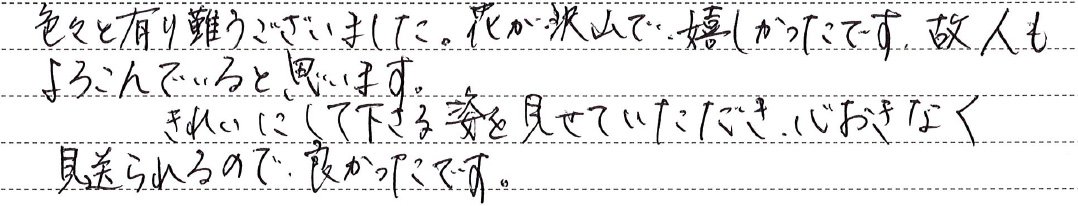 色々と有り難うございました。花が沢山で、嬉しかったです。故人も
よろこんでいると思います。
きれいにして下さる姿を見せていただき、心おきなく
見送られるので、良かったです。